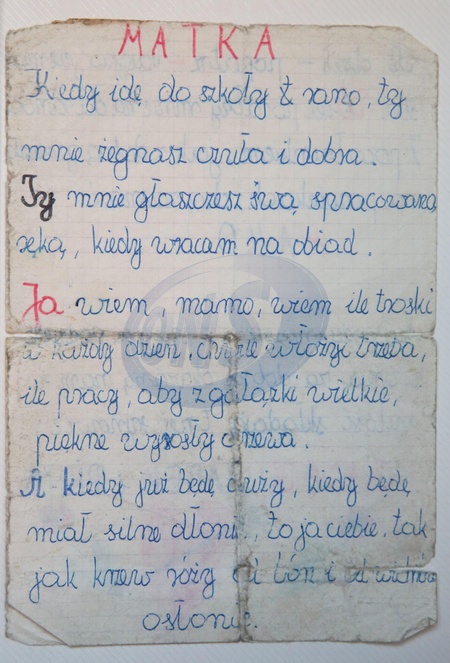 MATKA
Kiedy idę do szkoły z rano, ty
mnie żegnasz czuła i dobra.
Ty mnie głaszczesz swą spracowaną
ręką, kiedy wracam na obiad.
Ja wiem, mamo, wiem ile troski
w każdy dzień, chwilę włożyć trzeba,
ile pracy, aby z gałązki wielkie,
piękne wyrosły drzewa.
A kiedy już będę duży, kiedy będę
miał silne dłonie, to ja ciebie, tak
jak krzew róży od burz i od wichrów
osłonię.